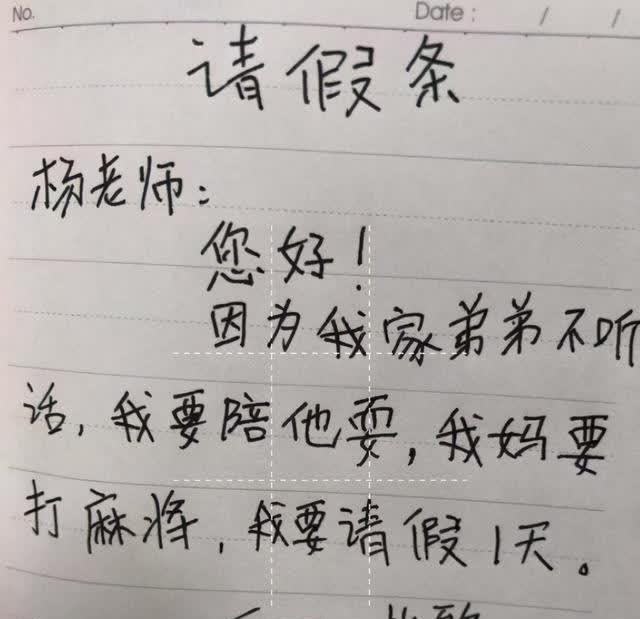 No.
Date: / /
请假条
杨老师:
您好!
因为我家弟弟不听
话,我要陪他耍,我妈要
打麻将,我要请假1天。